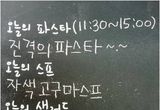 오늘의 파스타(11:30~15:00)
진격의 파스타~~
오늘의 스프
자색고구마스프
오늘의